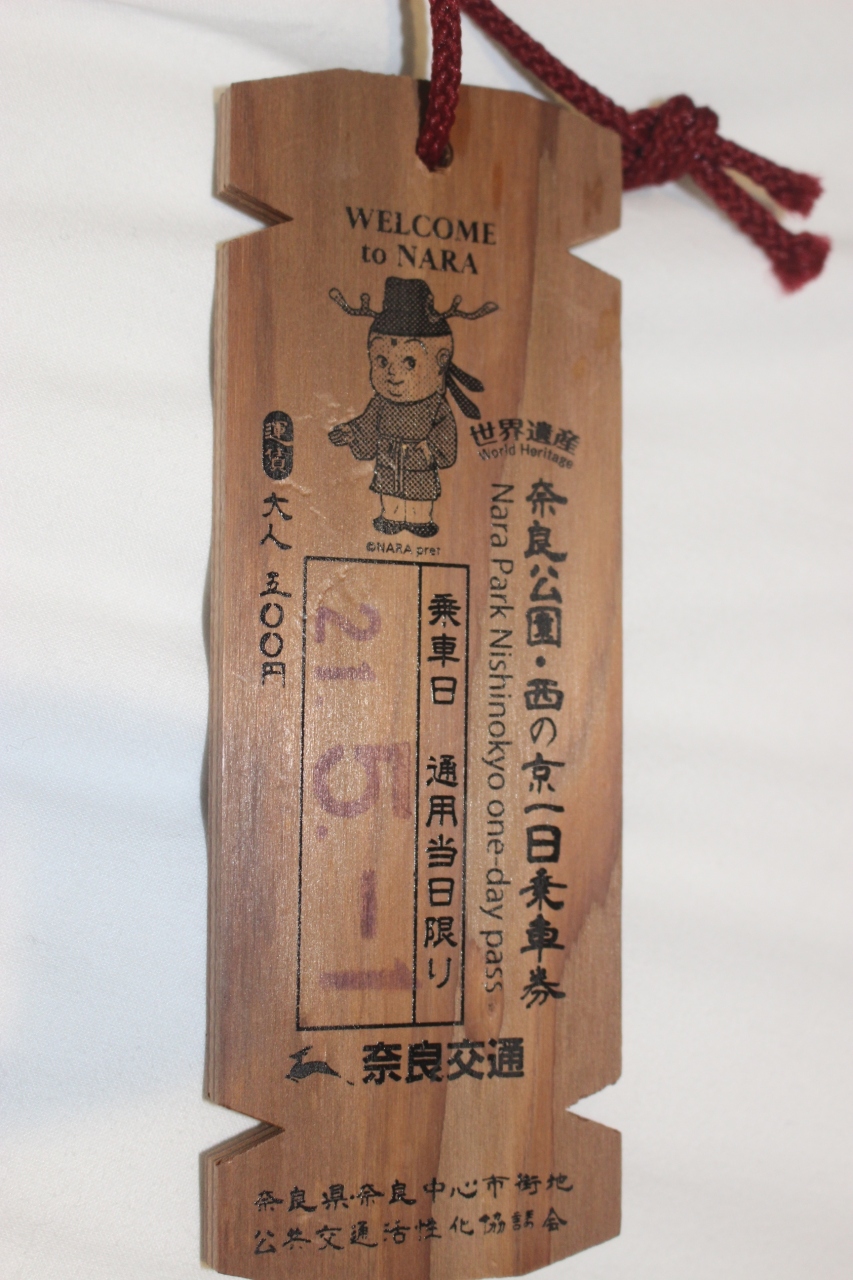 WELCOME
to NARA
©NARA pref
世界遺産
World Heritage
奈良公園・西の京一日乗車券
Nara Park Nishinokyo one-day pass
乗車日 通用当日限り
21.-5.-1
運賃 大人 五〇〇円
奈良交通
奈良県・奈良中心市街地
公共交通活性化協議会